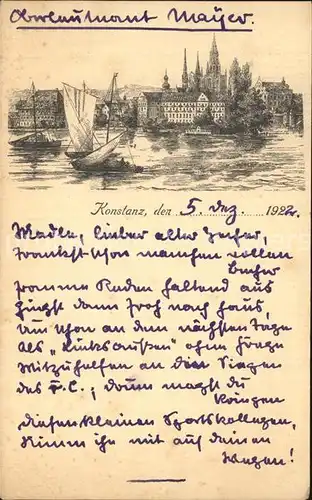 Oberleutnant Mayer.
Konstanz, den 5. Dez. 1922.
Madle, lieber alter Zecher,
Trankst schon manchen vollen
Becher
fromme Reden haltend aus
Gingst dann froh nach Haus,
Um schon an dem nächsten Tage
als "Linksaußen" ohne Frage
Mitzuhelfen an den Siegen
des F.C.; drum magst du
kriegen
diesen kleinen Sportskollegen,
Nimm ihn mit auf deinen
Wegen!